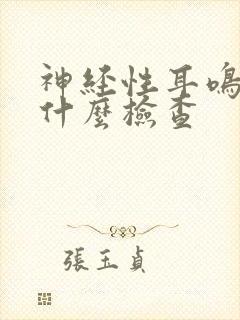 神経性耳鳴
什麼檢查
張玉貞